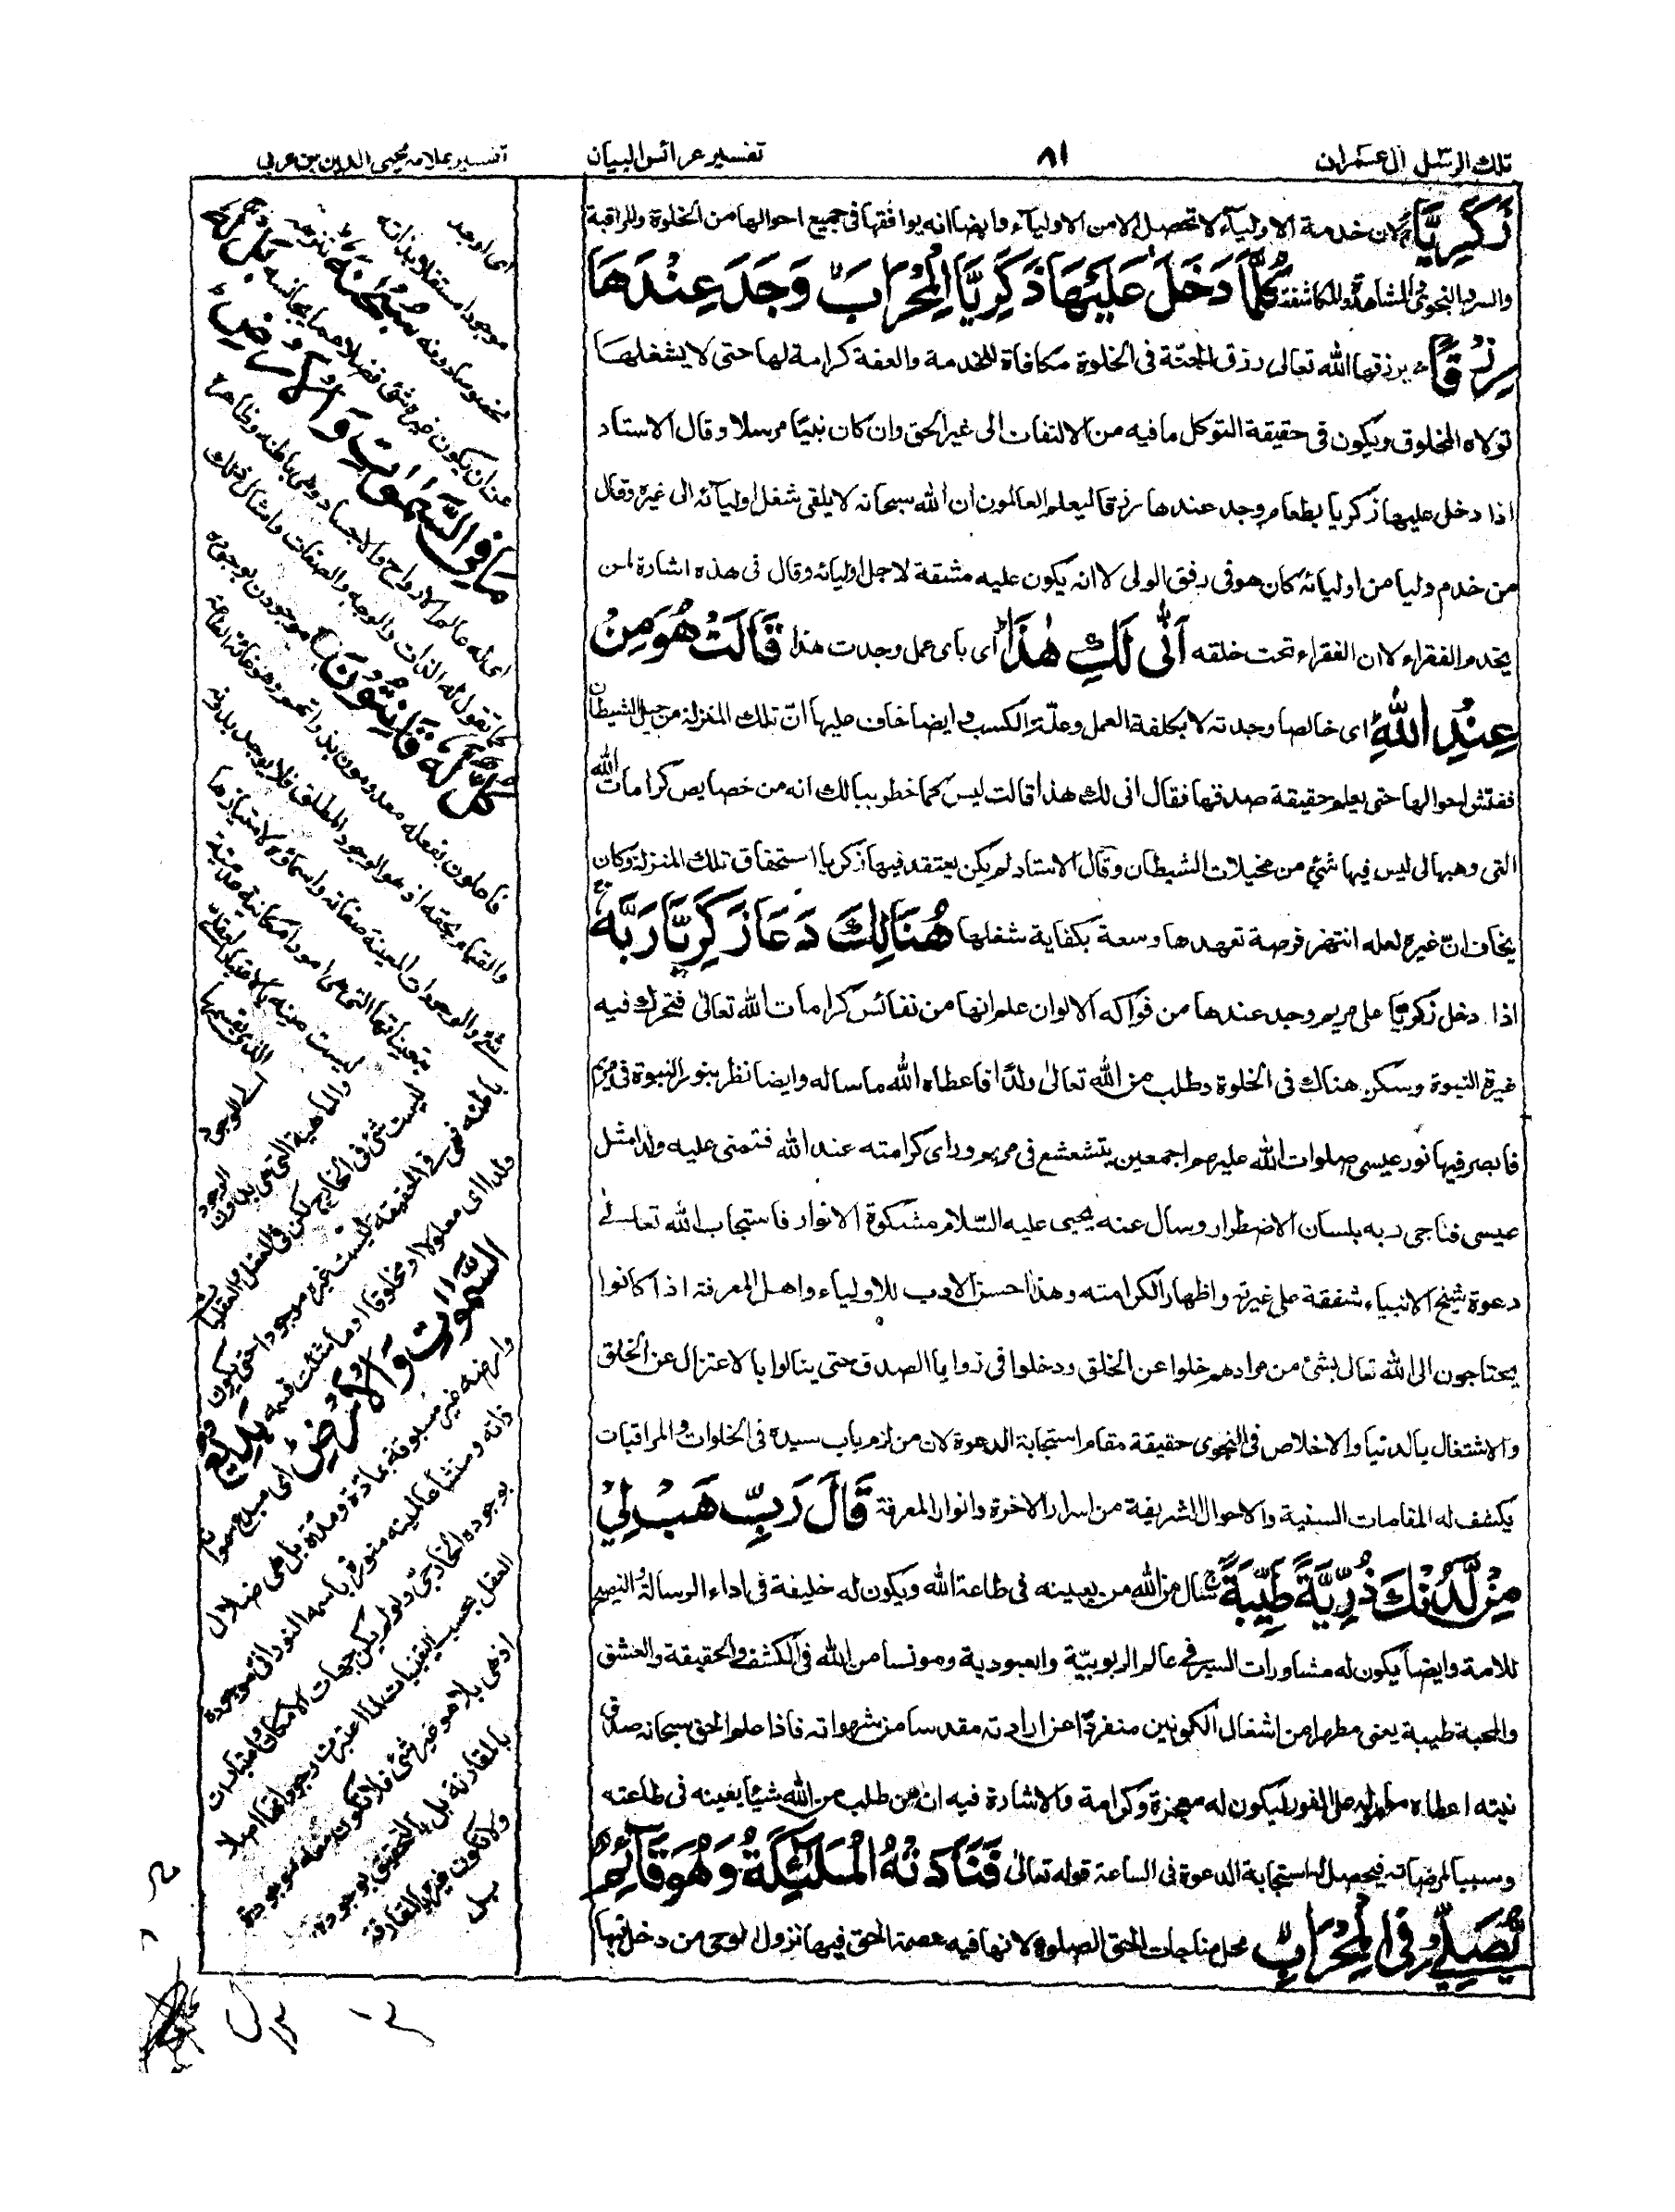 تلك الرسل ال عمران
٨١
تفسير عرائس البيان
تفسير علامه محيى الدين بن عربى
زَكَرِيَّا لان خدمة الاوليآء لا تحصل الا من الاوليآء وايضا انه يوافقها فى جميع احوالها من الخلوة والمراقبة
والسر والنجوى والمشاهدة والمكاشفة كُلَّمَا دَخَلَ عَلَيْهَا زَكَرِيَّا الْمِحْرَابَ وَجَدَ عِنْدَهَا
رِزْقًا يرزقها الله تعالى رزق الجنّة فى الخلوة مكافاة للخدمة والعفة كرامة لها حتى لا يشغلها
تولاه المخلوق ويكون فى حقيقة التوكل ما فيه من الالتفات الى غير الحق وان كان نبيّا مرسلا وقال الاستاد
اذا دخل عليها زكريا بطعام وجد عندها رزقا ليعلم العالمون ان الله سبحانه لا يلقى شغل اوليآئه الى غيره وقال
من خدم وليا من اوليائه كان هو فى رفق الولى لا انه يكون عليه مشقة لاجل اوليائه وقال فى هذه اشارة لمن
يخدم الفقراء لا ان الفقراء تحت خلقه اَنّٰى لَكِ هٰذَا اى باى عمل وجدت هذا قَالَتْ هُوَ مِنْ
عِنْدِ اللّٰهِ اى خالصا وجدته لا بكلفة العمل وعلّة الكسب وايضا خاف عليها انّ تلك المنزلة من حيل الشيطان
ففتش احوالها حتى يعلم حقيقة صدقها فقال انى لك هذا قالت ليس كما خطر ببالك انه من خصايص كرامات الله
التى وهبها لى ليس فيها شئ من مخيلات الشيطان وقال الاستاد لم يكن يعتقد فيها زكريا استحقاق تلك المنزلة وكان
يخاف انّ غيره لعله انتهز فرصة تعهدها وسعة بكفاية شغلها هُنَالِكَ دَعَا زَكَرِيَّا رَبَّهٗ
اذا دخل زكريا على مريم وجد عندها من فواكه الالوان علم انها من نفائس كرامات الله تعالى فتحرك فيه
غيرة النبوة وسكن هناك فى الخلوة وطلب من الله تعالى ولدًا فاعطاه الله ما ساله وايضا نظر بنور النبوة فى مريم
فابصر فيها نور عيسى صلوات الله عليهم اجمعين يتشعشع فى مريم وراى كرامته عند الله فتمنى عليه ولدا مثل
عيسى فناجى ربه بلسان الاضطرار وسال عنه يحيى عليه السّلام مشكوة الانوار فاستجاب الله تعالى
دعوة شيخ الانبياء شفقة على غيرته واظهارا لكرامته وهذا احسن الادب للاولياء واهل المعرفة اذا كانوا
يحتاجون الى الله تعالى بشئ من مرادهم خلوا عن الخلق ودخلوا فى زوايا الصدق حتى ينالوا بالاعتزال عن الخلق
والاشتغال بالدنيا والاخلاص فى النجوى حقيقة مقام استجابة الدعوة لان من لزم باب سيده فى الخلوات والمراقبات
يكشف له المقامات السنية والاحوال الشريفة من اسرار الاخرة وانوار المعرفة قَالَ رَبِّ هَبْ لِيْ
مِنْ لَّدُنْكَ ذُرِّيَّةً طَيِّبَةً سال من الله من يعينه فى طاعة الله ويكون له خليفة فى اداء الرسالة والنصيحة
للامة وايضا يكون له مشاورات السير فى عالم الربوبيّة والعبودية ومونسا من الله فى الكشف والحقيقة والعشق
والمحبة طيبة يعنى مطهرا من اشغال الكونين منفردًا عن ارادته مقدسا من شهواته فاذا علم الحق سبحانه صدق
نيته اعطاه مامولـه على الفور ليكون له معجزة وكرامة والاشارة فيه ان من طلب من الله شيئا يعينه فى طاعته
وسببا لمرضاته فيحصل له استجابة الدعوة فى الساعة قوله تعالى فَنَادَتْهُ الْمَلٰٓئِكَةُ وَهُوَ قَآئِمٌ
يُّصَلِّيْ فِي الْمِحْرَابِ محل مناجات الحق الصلوة لانها فيه عصمة الحق فيها نزول الوحى من دخل فيها
اى اوجد
موجودا مستقلا بذاته
مخصوصا دونه سُبْحٰنَهٗ تنزهه
عن ان يكون غيره شئ فضلا عما يجانسه بَلْ لَهٗ
مَا فِى السَّمٰوٰتِ وَالْاَرْضِ
اى له عالم الارواح والاجساد وهى باطنه وظاهره
كما تقول له الذات والوجه والصفات وامثال ذلك
كُلٌّ لَّهٗ قَانِتُوْنَ موجودون بوجوده
فاعلون بفعله معدومون بذواتهم وهو غاية الطاعة
والقيام بحقه اذ هو الوجود المطلق فلا يوجد بدونه
شئ والوجودات المعينة صفاته واسماؤه لامتيازها
بتعيناتها التى هى امور امكانية عدمية
ليست عينه بالاعتبار العقلى
الذى يقسمها
الى الوجود
والماهية التى هى بدون الوجود
ليست شئ فى الخارج لكن فى العقل والعقليات
باطنه فهى فى الحقيقة ليست غيره موجودا حتى يكون
ولدا اى معلولا او مخلوقا او ما شئت فسمه بَدِيْعُ
السَّمٰوٰتِ وَالْاَرْضِ اى مبدع سمواته
وارضه غير مسبوقة بمادة ومدّة بل هى ضلال
ذاته ومنشأ عالميته منورة باسمه النورانى موجودة
بوجوده الخارجىّ ولو لم يكن جهات الامكان وامتيازات
العقل بحسب التعينات لما اعتبرت وجوداتها اصلا
اذ هى بلا هو غير شئ فلا تكون معه موجودة
بالمقارنة بل التحقيق بوجوده
ولا تكون غيره بالمفارقة
بل